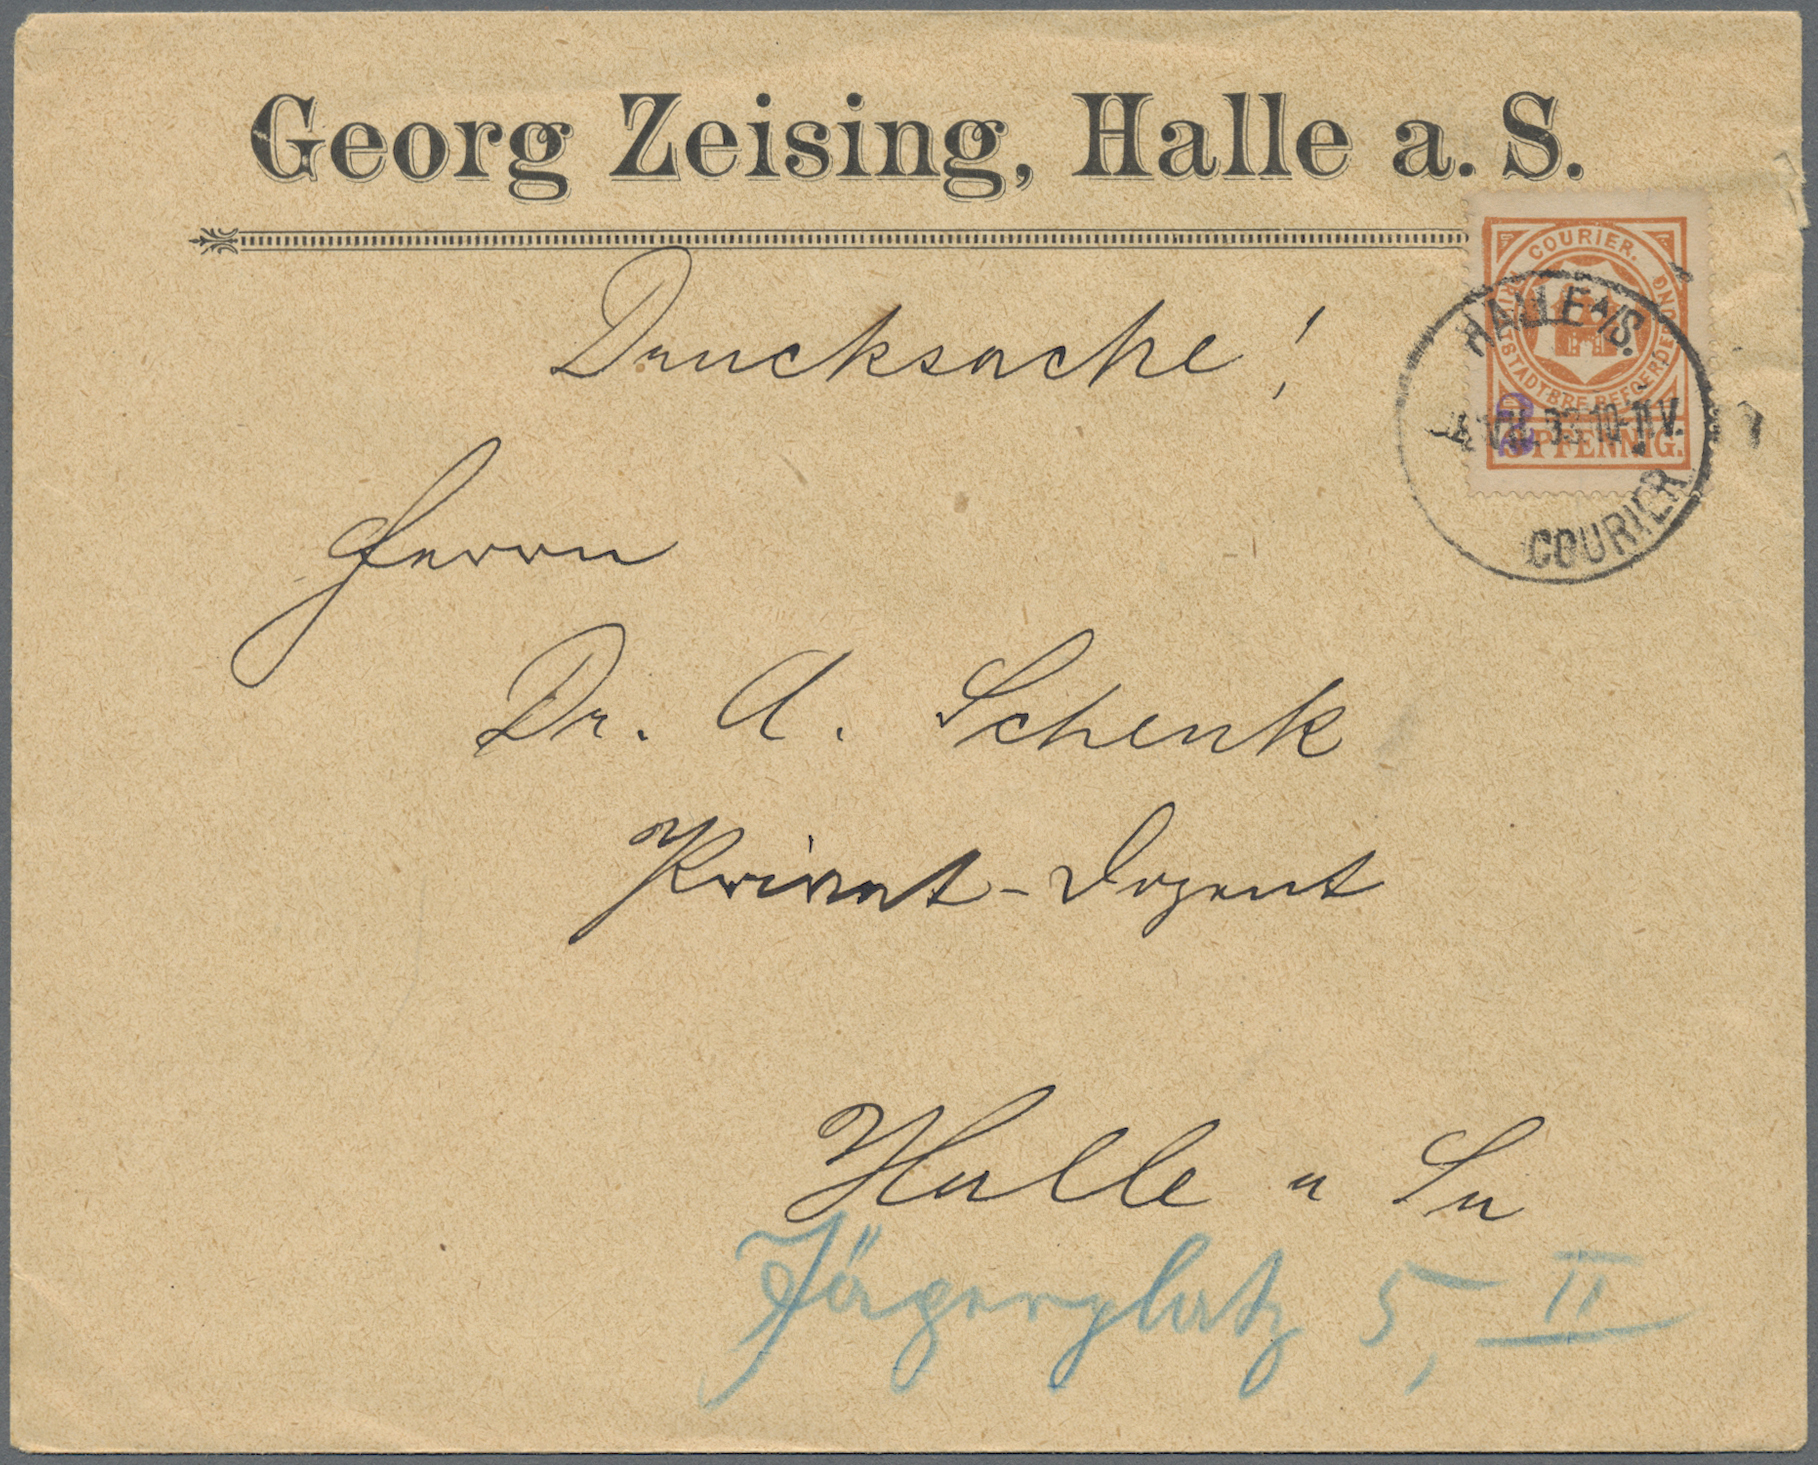 Georg Zeising, Halle a. S.
Drucksache!
COURIER.
PRIVATSTADTBRIEFBEFOERDERUNG
2
3 PFENNIG.
HALLE A/S.
VII. 93 10-11 V.
COURIER
Herrn
Dr. A. Schenk
Privat-Dozent
Halle a Sa
Jägerplatz 5, II